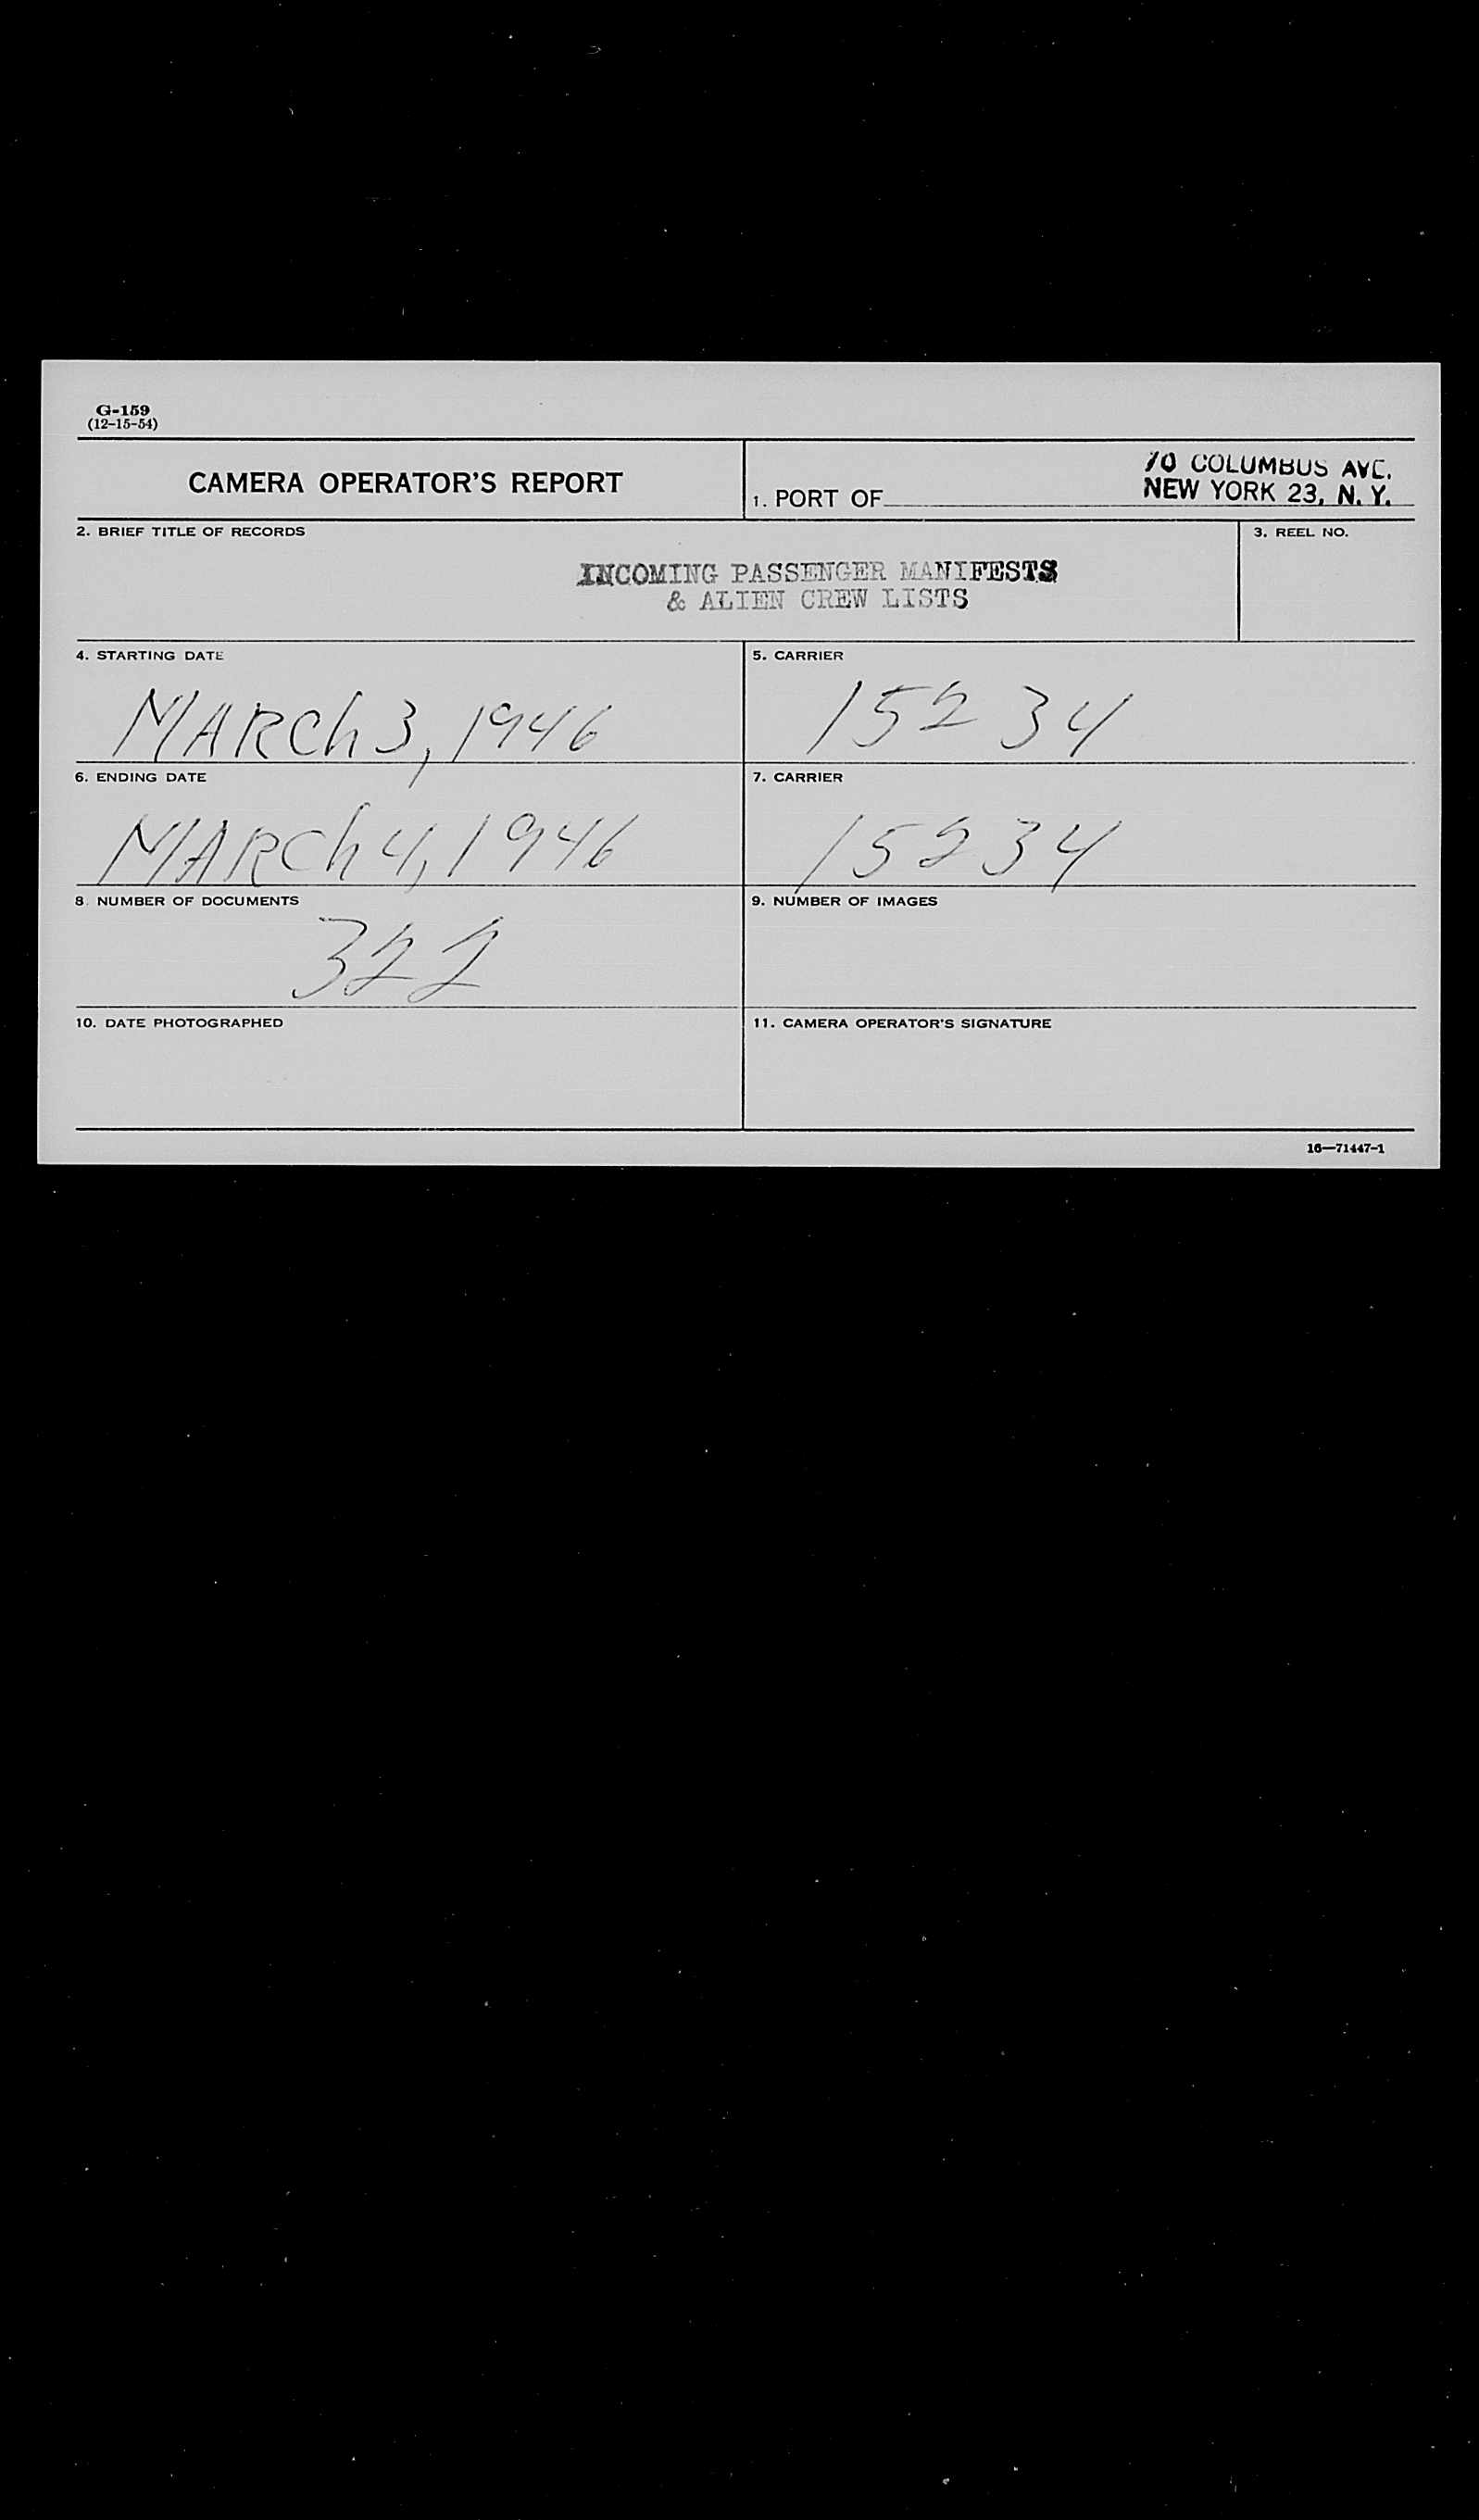 G-159
(12-15-54)
CAMERA OPERATOR'S REPORT
1. PORT OF
70 COLUMBUS AVE.
NEW YORK 23, N. Y.
2. BRIEF TITLE OF RECORDS
INCOMING PASSENGER MANIFESTS
& ALIEN CREW LISTS
3. REEL NO.
4. STARTING DATE
MARCh 3, 1946
5. CARRIER
15234
6. ENDING DATE
MARCh 4, 1946
7. CARRIER
15234
8. NUMBER OF DOCUMENTS
322
9. NUMBER OF IMAGES
10. DATE PHOTOGRAPHED
11. CAMERA OPERATOR'S SIGNATURE
16—71447-1